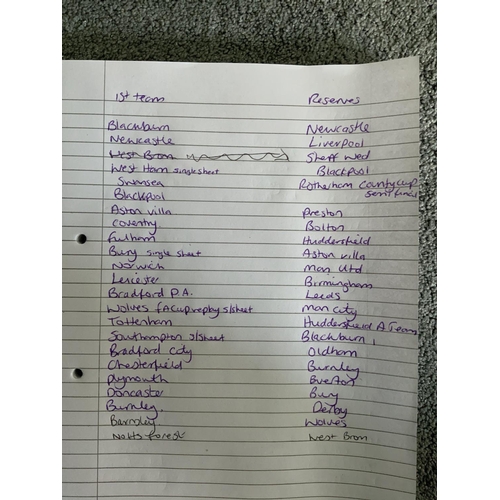 1st team Reserves
Blackburn Newcastle
Newcastle Liverpool
West Brom Sheff Wed
West Ham single sheet Blackpool
Swansea Rotherham County cup semi final
Blackpool
Aston villa Preston
Coventry Bolton
Fulham Huddersfield
Bury single sheet Aston villa
Norwich Man Utd
Leicester Birmingham
Bradford P.A. Leeds
Wolves FA Cup rep by s/sheet Man City
Tottenham Huddersfield A Team
Southampton s/sheet Blackburn
Bradford City Oldham
Chesterfield Burnley
Plymouth Everton
Doncaster Bury
Burnley. Derby
Barnsley. Wolves
Notts forest West Brom